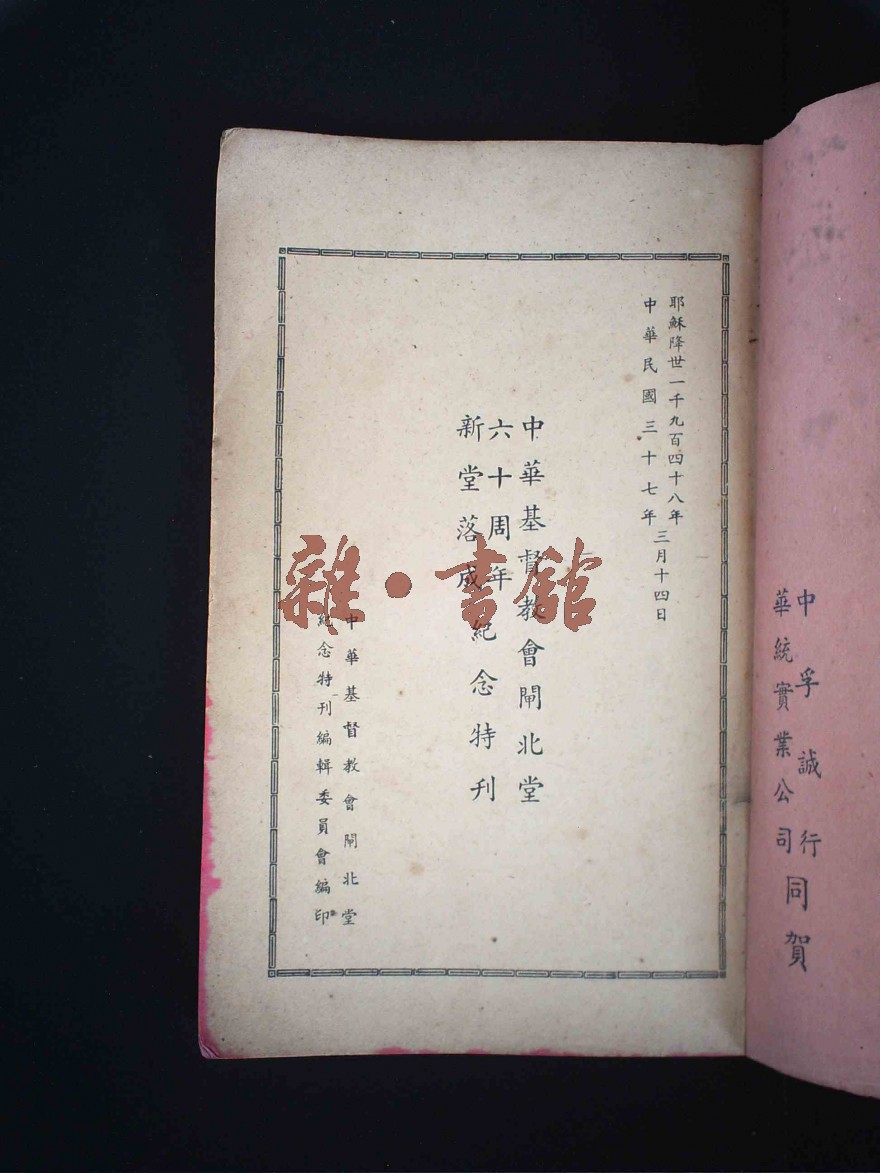 中孚誠行
華統實業公司
同賀
耶穌降世一千九百四十八年
中華民國三十七年
三月十四日
中華基督教會閘北堂
六十周年
新堂落成
紀念特刊
中華基督教會閘北堂
紀念特刊編輯委員會編印
雜·書館